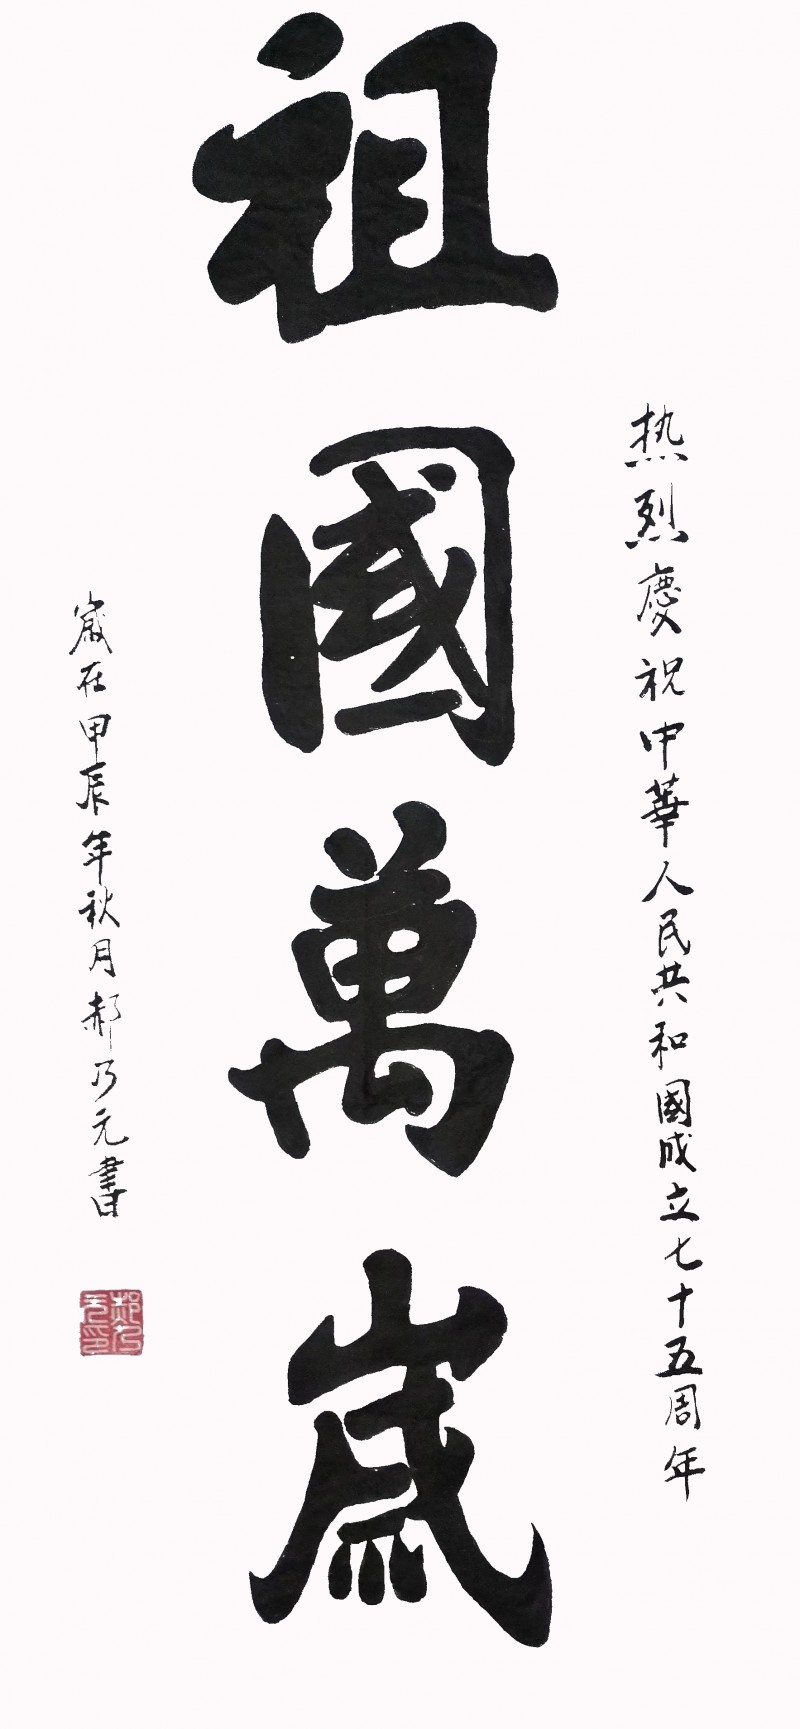 热烈慶祝中華人民共和國成立七十五周年
祖國萬歲
歲在甲辰年秋月郝乃元書
郝乃元印